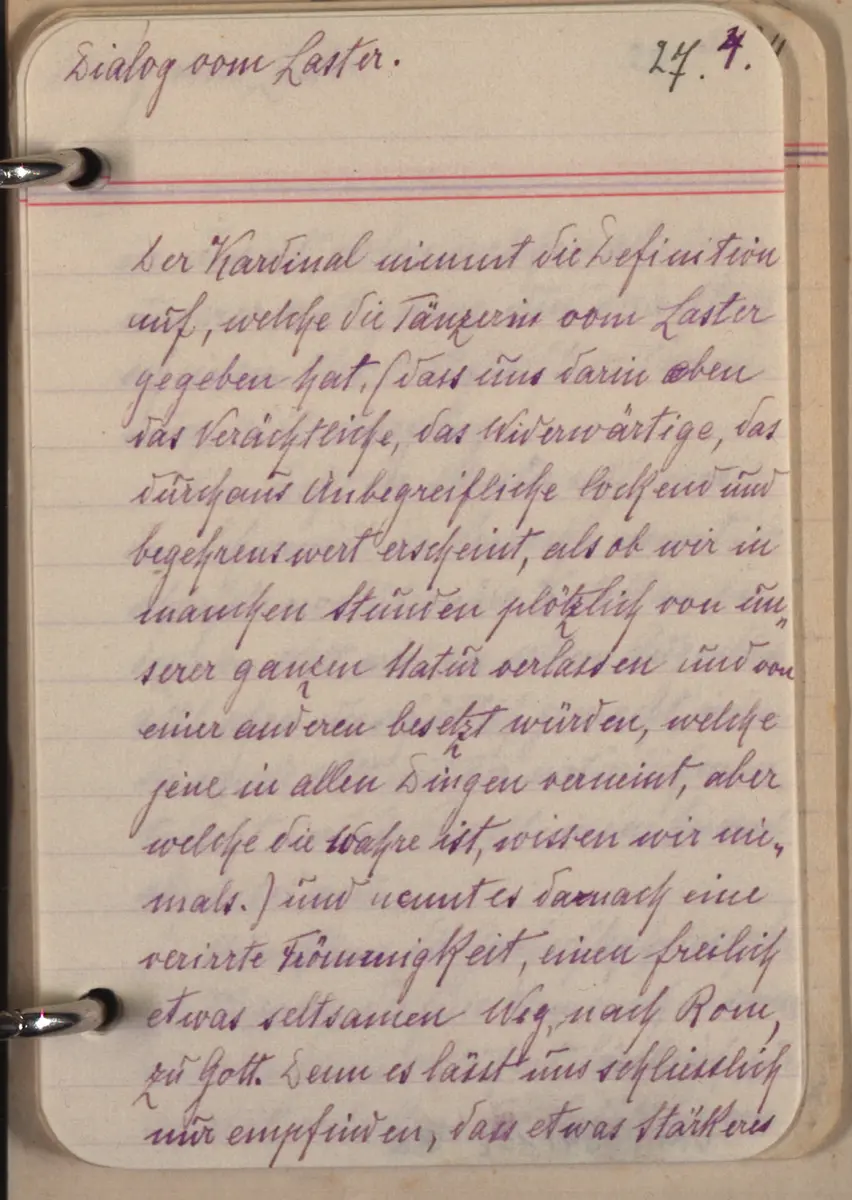 Dialog vom Laster. 27. 4.
Der Kardinal nimmt die Definition
auf, welche die Tänzerin vom Laster
gegeben hat, (dass uns darin eben
das Verächtliche, das Widerwärtige, das
durchaus Unbegreifliche lockend und
begehrenswert erscheint, als ob wir in
manchen Stunden plötzlich von un„
serer ganzen Natur verlassen und von
einer anderen besetzt würden, welche
jene in allen Dingen verneint, aber
welche die Wahre ist, wissen wir nie„
mals.) und nennt es darnach eine
verirrte Frömmigkeit, einen freilich
etwas seltsamen Weg, nach Rom,
zu Gott. Denn es lässt uns schliesslich
nur empfinden, dass etwas Stärkeres